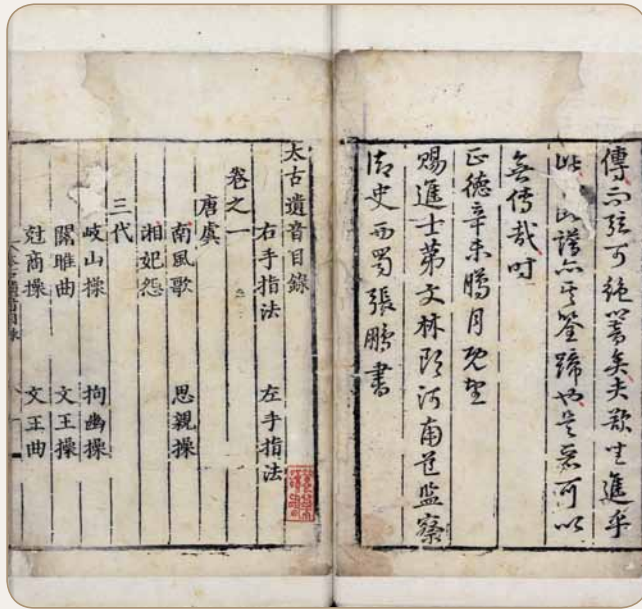 傳而弦可絕響矣夫欲坐進乎
此此譜亦其筌蹄也是烏可以
無傳哉時
正德辛未臘月既望
賜進士第文林郎河南道監察
御史西蜀張鵬書
太古遺音目錄
右手指法 左手指法
卷之一
唐虞
南風歌 思親操
湘妃怨
三代
岐山操 拘幽操
關雎曲 文王操
尅商操 文王曲